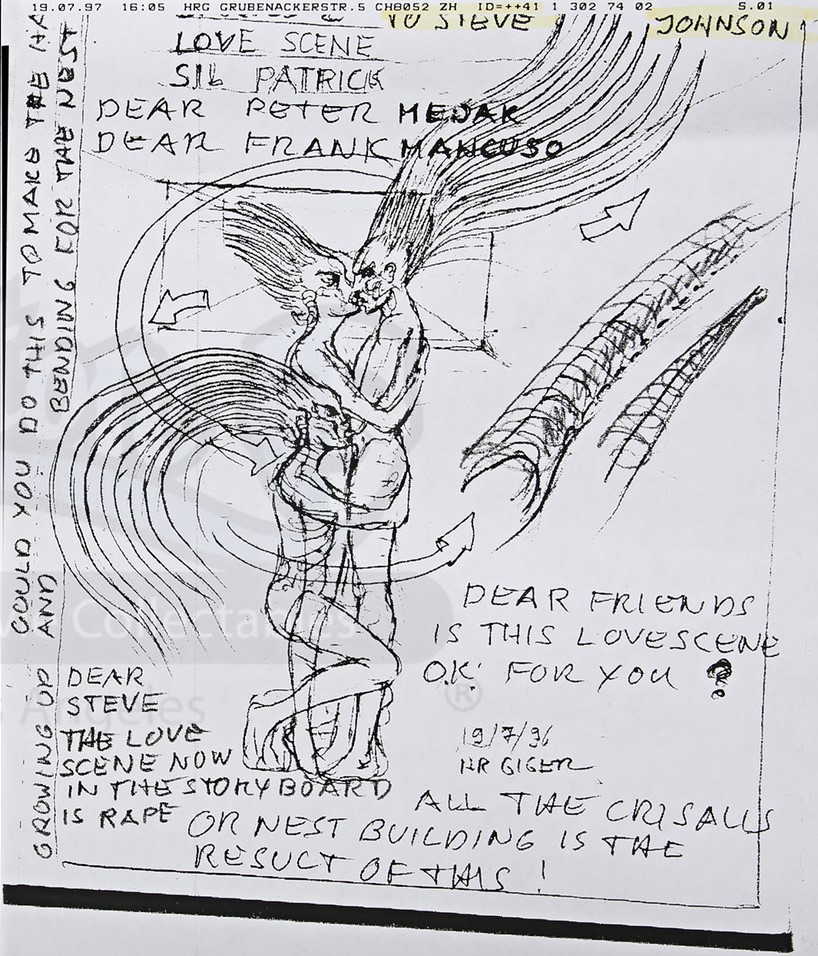 19.07.97 16:05 HRG GRUBENACKERSTR.5 CH8052 ZH ID=++41 1 302 74 02 S.01
TO STEVE JOHNSON
LOVE SCENE
SIL PATRICK
DEAR PETER MEDAK
DEAR FRANK MANCUSO
COULD YOU DO THIS TO MAKE THE
GROWING UP AND BENDING FOR THE NEST
DEAR FRIENDS
IS THIS LOVESCENE
O.K. FOR YOU ?
19/7/96
HR GIGER
DEAR
STEVE
THE LOVE
SCENE NOW
IN THE STORYBOARD
IS RAPE
ALL THE CRISALLS
OR NEST BUILDING IS THE
RESULT OF THIS !
Collectables
Angeles
®